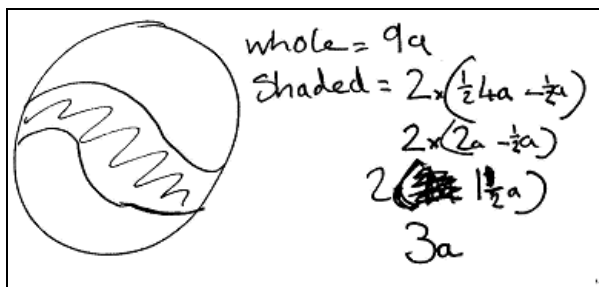 whole = 9a
Shaded = 2×(½4a − ½a)
2×(2a − ½a)
2( 1½a)
3a